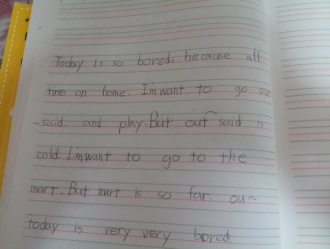 Today is so bored, because all
time on home. I'm want to go out
-said. and play. But out~said is
cold. I'm want to go to the
mart. But mart is so far. ou~
today is very very bored.